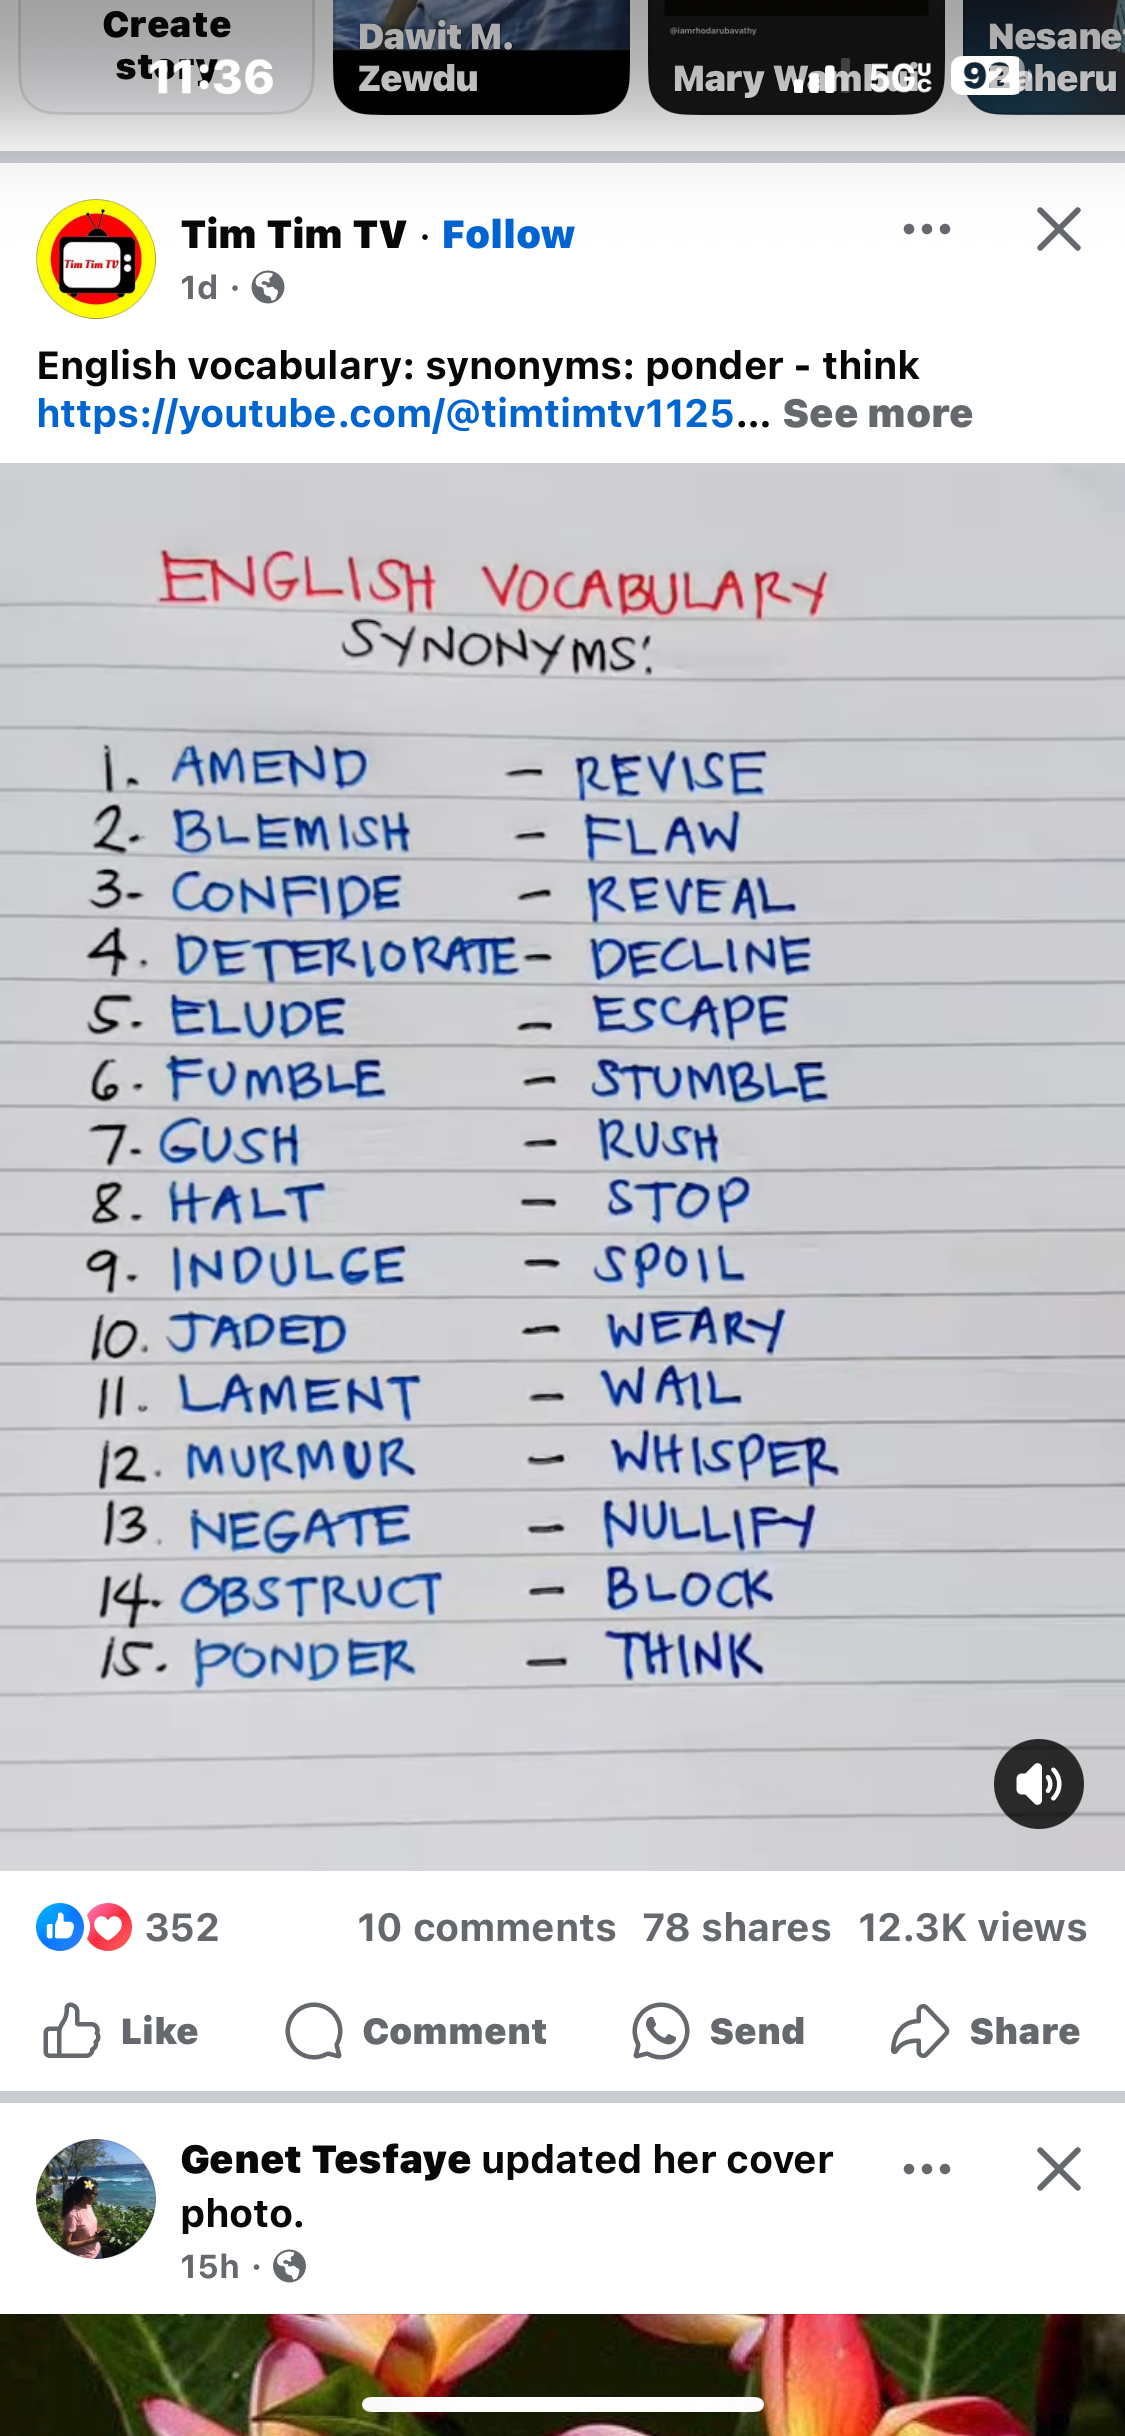 Create
story
Dawit M.
Zewdu
@iamrhodarubavathy
11:36
5G
92
Tim Tim TV · Follow
Tim Tim TV
1d ·
English vocabulary: synonyms: ponder - think
https://youtube.com/@timtimtv1125... See more
ENGLISH VOCABULARY
SYNONYMS:
1. AMEND - REVISE
2. BLEMISH - FLAW
3- CONFIDE - REVEAL
4. DETERIORATE - DECLINE
5. ELUDE - ESCAPE
6. FUMBLE - STUMBLE
7- GUSH - RUSH
8. HALT - STOP
9. INDULGE - SPOIL
10. JADED - WEARY
11. LAMENT - WAIL
12. MURMUR - WHISPER
13. NEGATE - NULLIFY
14. OBSTRUCT - BLOCK
15. PONDER - THINK
352 10 comments 78 shares 12.3K views
Like Comment Send Share
Genet Tesfaye updated her cover
photo.
15h ·